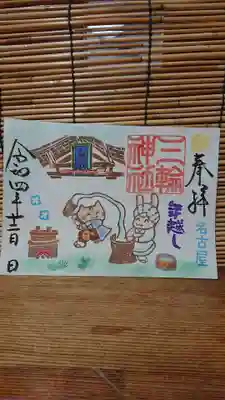 奉拝
名古屋
三輪
神社
年越し
令和四年十二月 日